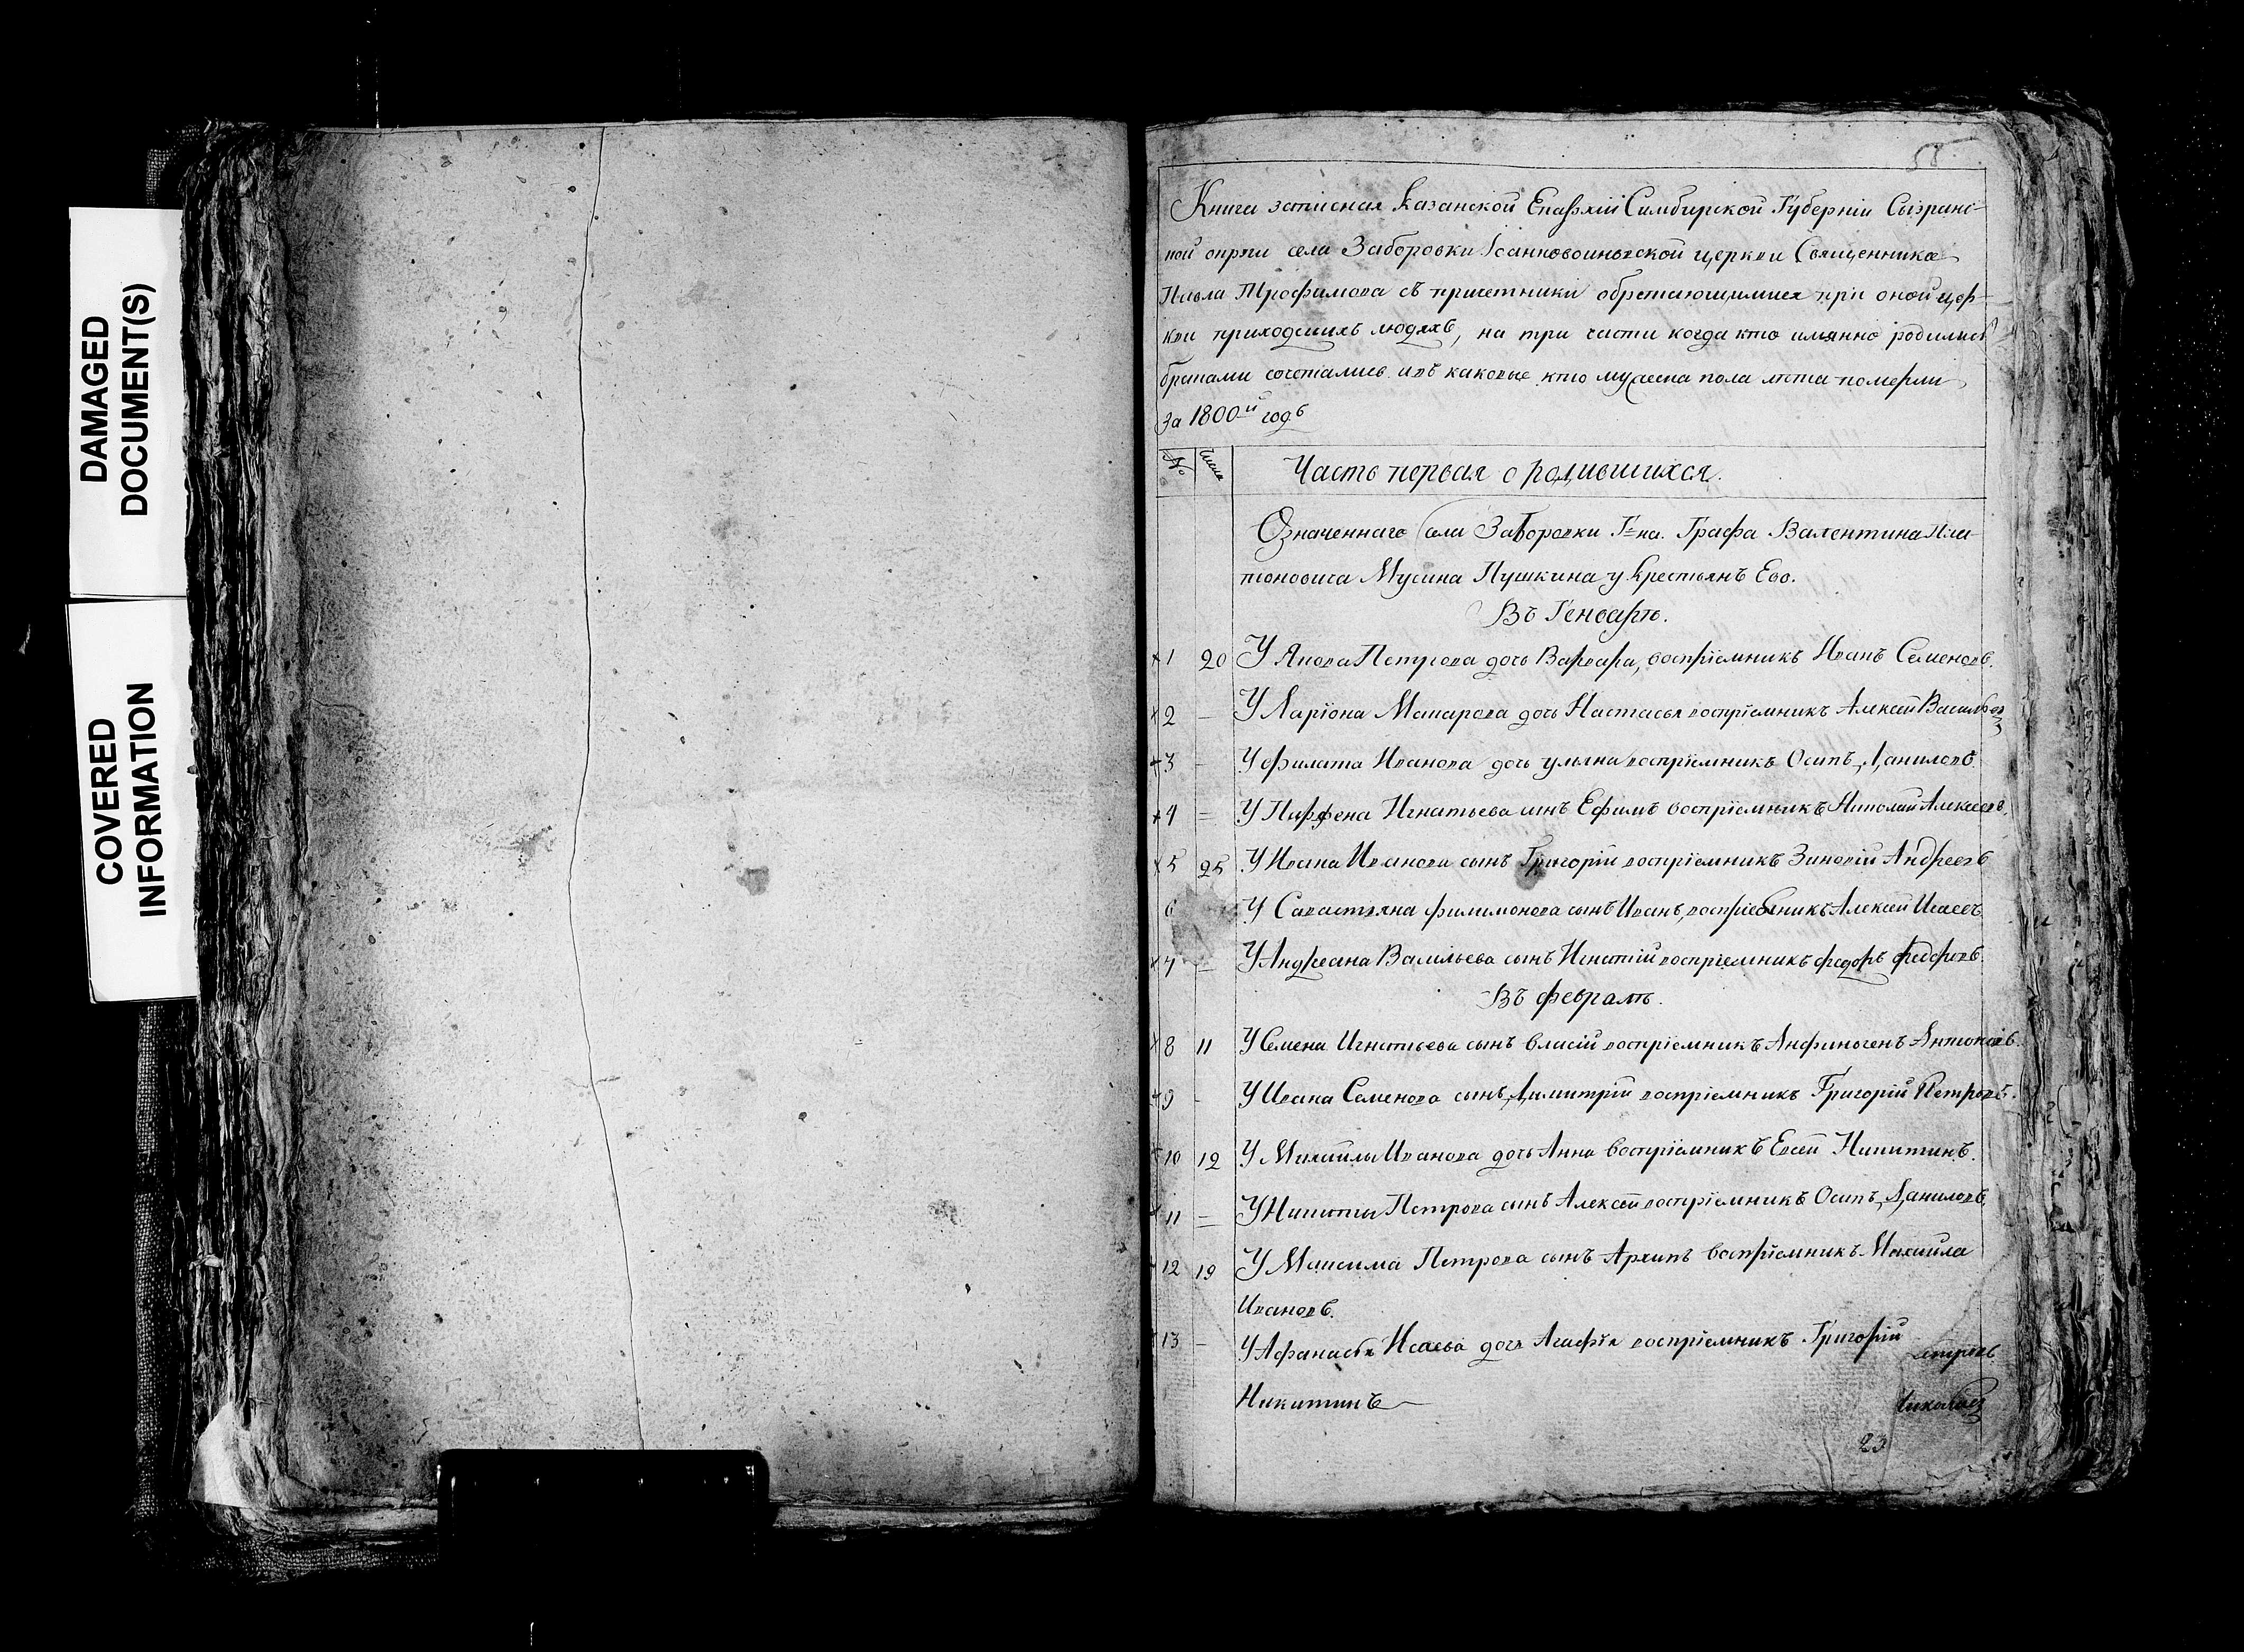 DAMAGED
DOCUMENT(S)
COVERED
INFORMATION
58
Книга записная Казанской Епархiи Симбирской Губернiи Сызранс-
кой округи села Заборовки Iоанновоиновской церкви Священника
Павла Трофимова съ причетники обретающимися при оной цер-
кви приходскихъ людяхъ, на три части когда кто имянно родились
браками сочетались и въ каковые кто мужеска пола лѣта померли
за 1800й годъ
№ Числа Часть первая о родившихся.
Означеннаго села Заборовки Г=на. Графа Валентина Пла-
тоновича Мусина Пушкина у крестьянъ Ево.
Въ Генварѣ.
1 20 У Якова Петрова дочь Варвара, воспрiемникъ Иванъ Семеновъ.
2 — У Ларiона Макарова дочь Настасья воспрiемникъ Алексей Васильевъ
3 — У филата Иванова дочь ульяна воспрiемникъ Осипъ Даниловъ
4 = У Парфена Игнатьева сынъ Ефимъ воспрiемникъ Николай Алексеевъ.
5 25 У Ивана Иванова сынъ Григорiй воспрiемникъ Зиновiй Андреевъ
6 У Савастьяна филимонова сынъ Иванъ, воспрiемникъ Алексей Исаевъ
7 — У Андреяна Васильева сынъ Игнатiй воспрiемникъ федоръ федоровъ.
Въ февралѣ.
8 11 У Семена Игнатьева сынъ власiй воспрiемникъ Анфиногенъ Антоновъ.
9 - У Ивана Семенова сынъ Димитрiй воспрiемникъ Григорiй Петровъ.
10 12 У Михайлы Иванова дочь Анна воспрiемникъ Евсей Никитинъ.
11 = У Никиты Петрова сынъ Алексей воспрiемникъ Осипъ Даниловъ
12 19 У Максима Петрова сынъ Архипъ воспрiемникъ Михайла
Ивановъ.
13 — У Афанасья Исаева дочь Агафiя воспрiемникъ Григорiй
Никитинъ
23